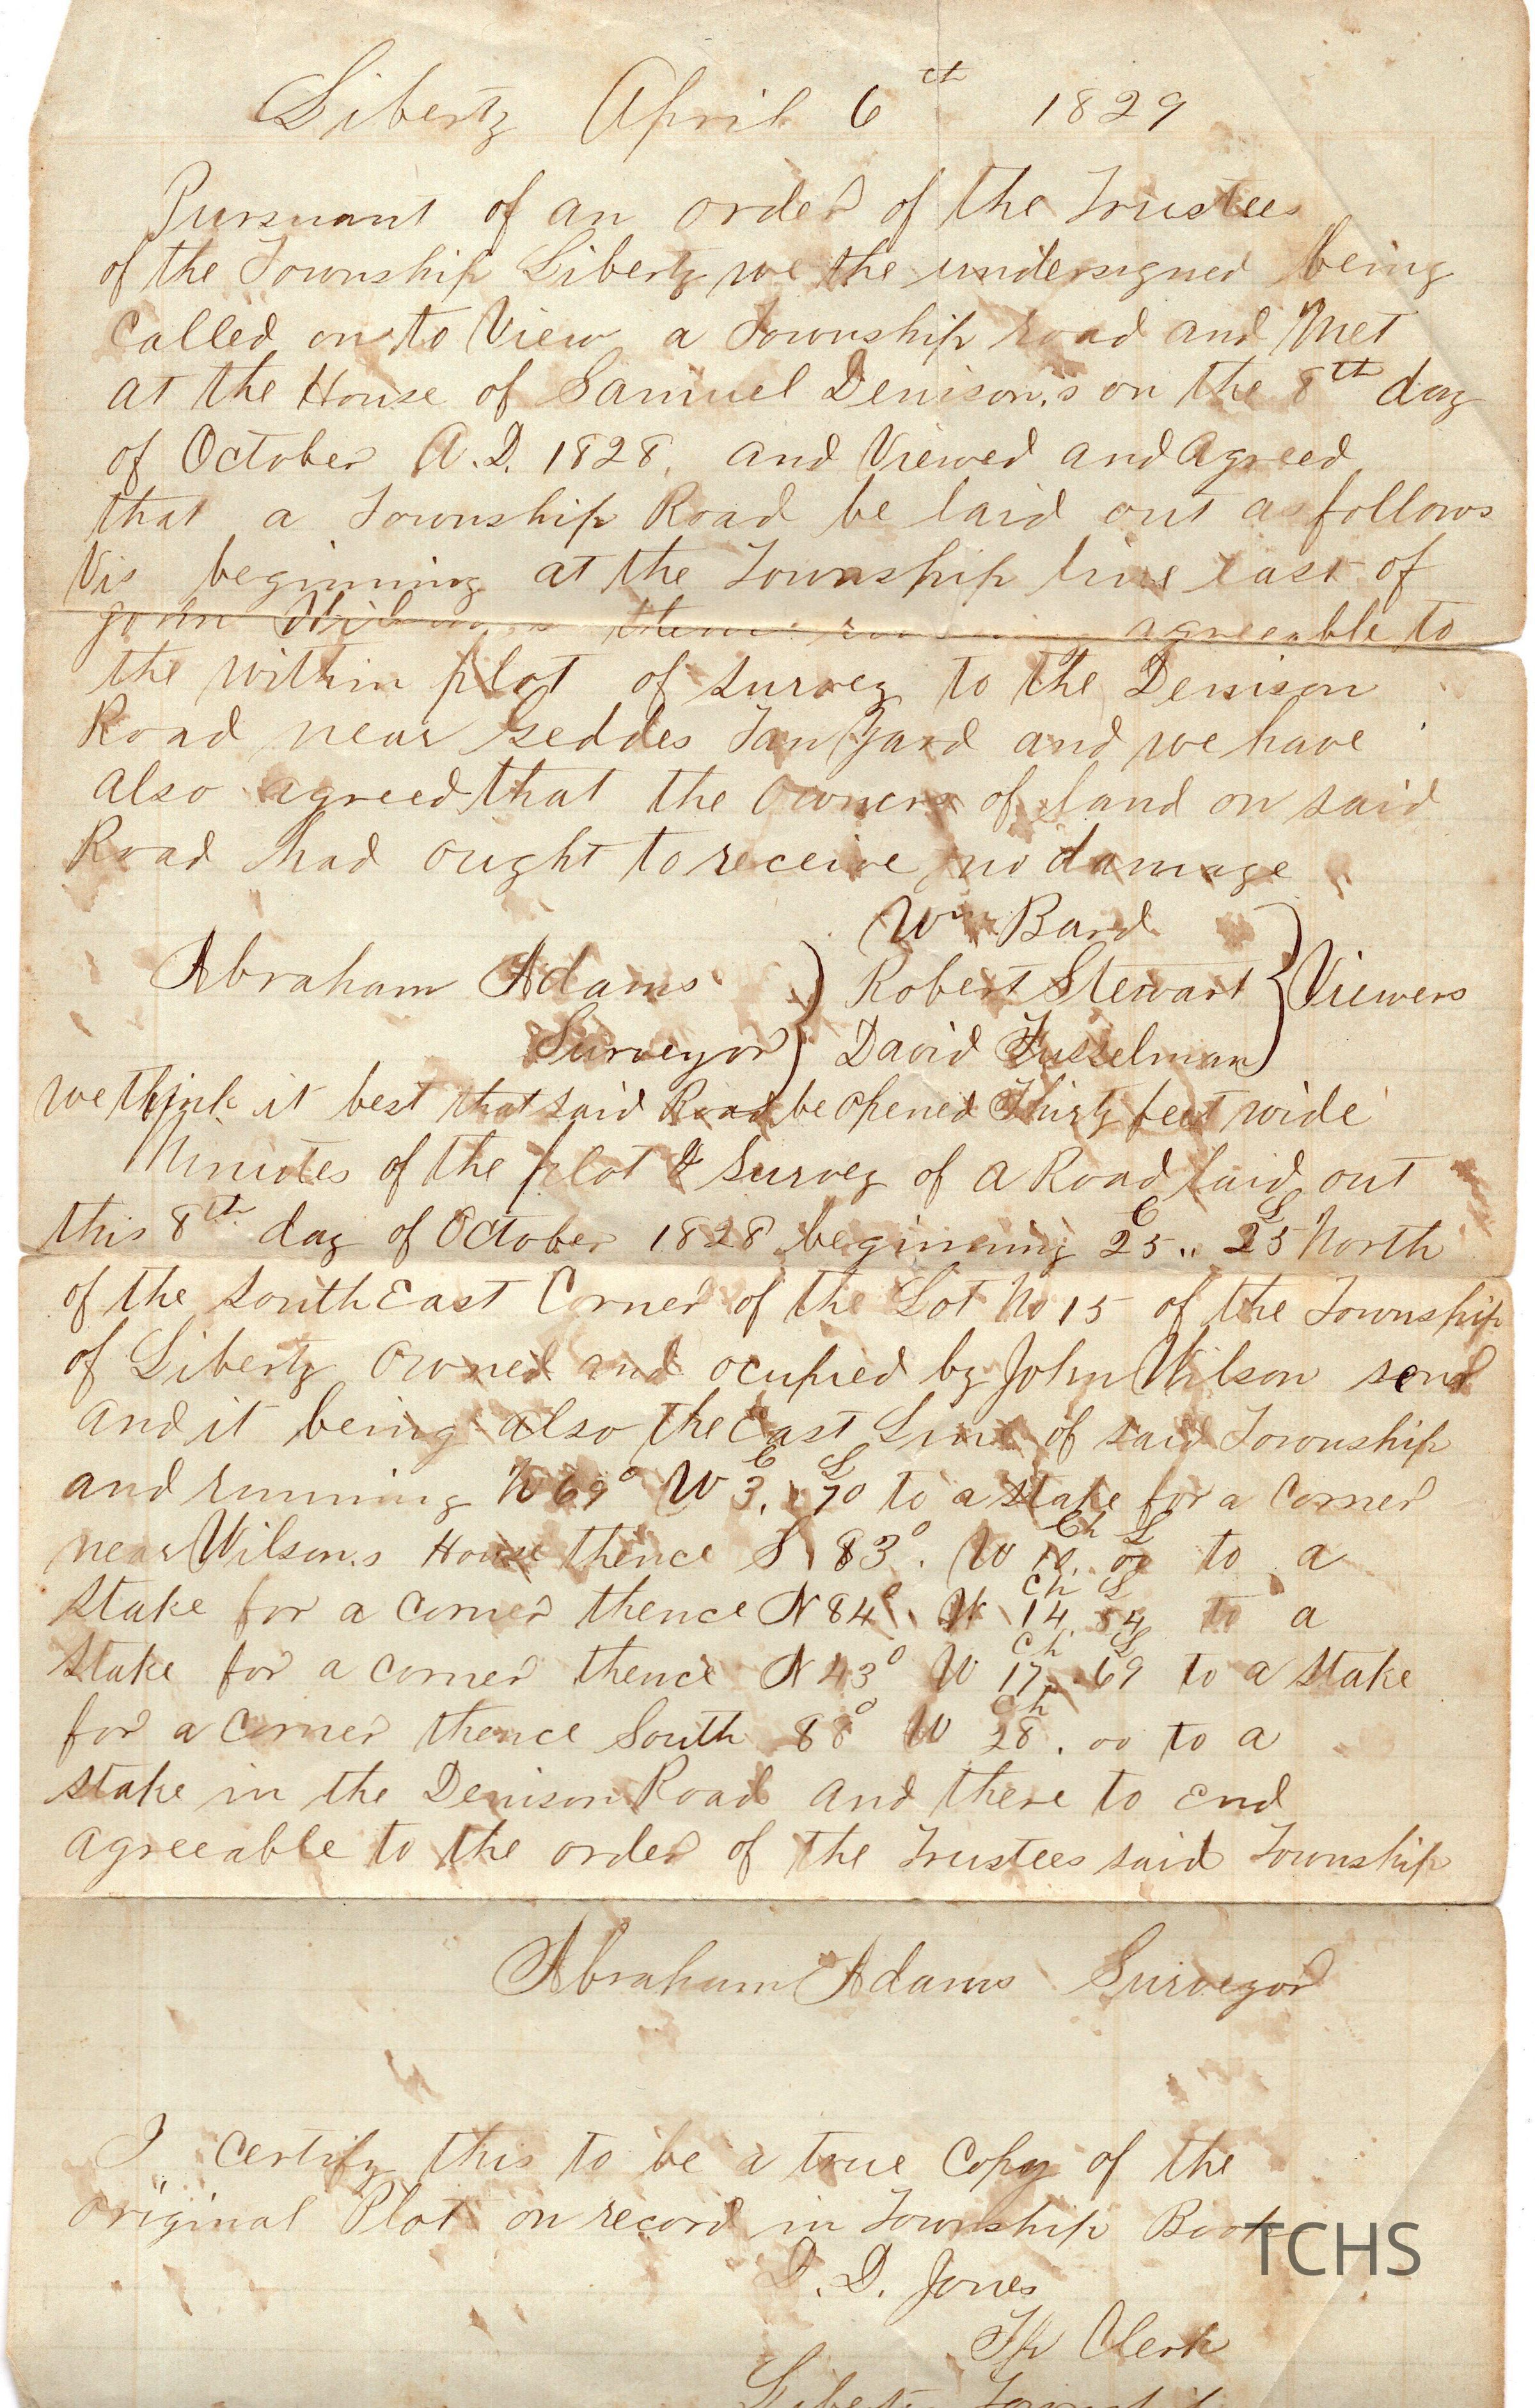 Liberty April 6th 1829
Pursuant of an order of the Trustees
of the Township Liberty we the undersigned being
Called on to View a Township road and Met
at the House of Samuel Denison,s on the 8th day
of October A.D. 1828. and Viewed and Agreed
that a Township Road be laid out as follows
Vis beginning at the Township line east of
John agreeable to
the within plot of survey to the Denison
Road near Geddes Tan Yard and we have
also agreed that the owners of land on said
Road had ought to receive no damage
Wm Bard
Abraham Adams Robert Stewart Viewers
Surveyor David Fusselman
we think it best that said Road be opened Thirty feet wide
Minutes of the plot & Survey of a Road laid out
this 8th day of October 1828 beginning 25C.. 25L North
of the South East Corner of the Lot No 15 of the Township
of Liberty owned and ocupied by John Wilson senr
and it being also the East Line of said Township
and running N 69° W 3C. 70L to a stake for a Corner
near Wilson,s House thence S 83°. W 10Ch. 00L to a
Stake for a Corner thence N 84°. W 14Ch. 54L to a
Stake for a Corner thence N 43° W 17Ch. 69L to a Stake
for a Corner thence South 88° W 28Ch. 00 to a
stake in the Denison Road and there to End
agreeable to the order of the Trustees said Township
Abraham Adams Surveyor
I Certify this to be a true Copy of the
original Plot on record in Township Book
D. D. Jones
Tp Clerk
Liberty Township
TCHS